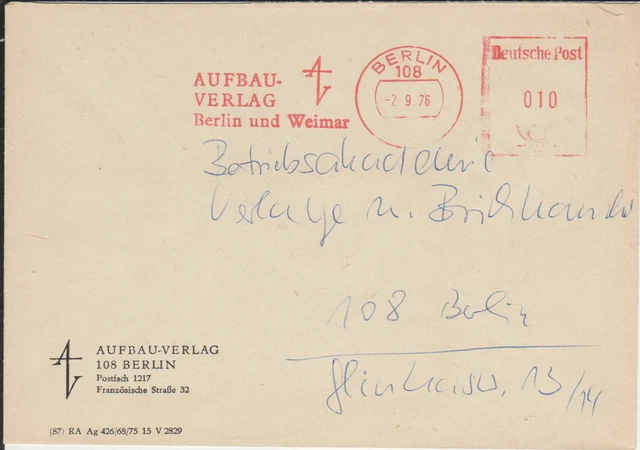 AUFBAU-
VERLAG
Berlin und Weimar
BERLIN
108
-2.9.76
Deutsche Post
010
Betriebsakademie
Verlage u. Buchhandel
108 Berlin
Glinkastr. 13/14
AUFBAU-VERLAG
108 BERLIN
Postfach 1217
Französische Straße 32
(87) RA Ag 426/68/75 15 V 2829